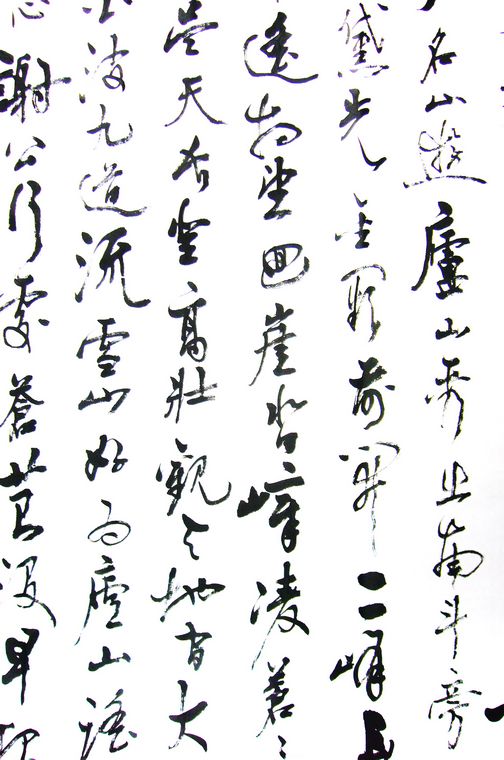 名山遊廬山秀出南斗旁
黛光金闕前開二峰長
遙相望迴崖沓嶂凌蒼〻
吳天長登高壯觀天地間大
波九道流雪山好為廬山謠
心謝公行處蒼苔沒早服